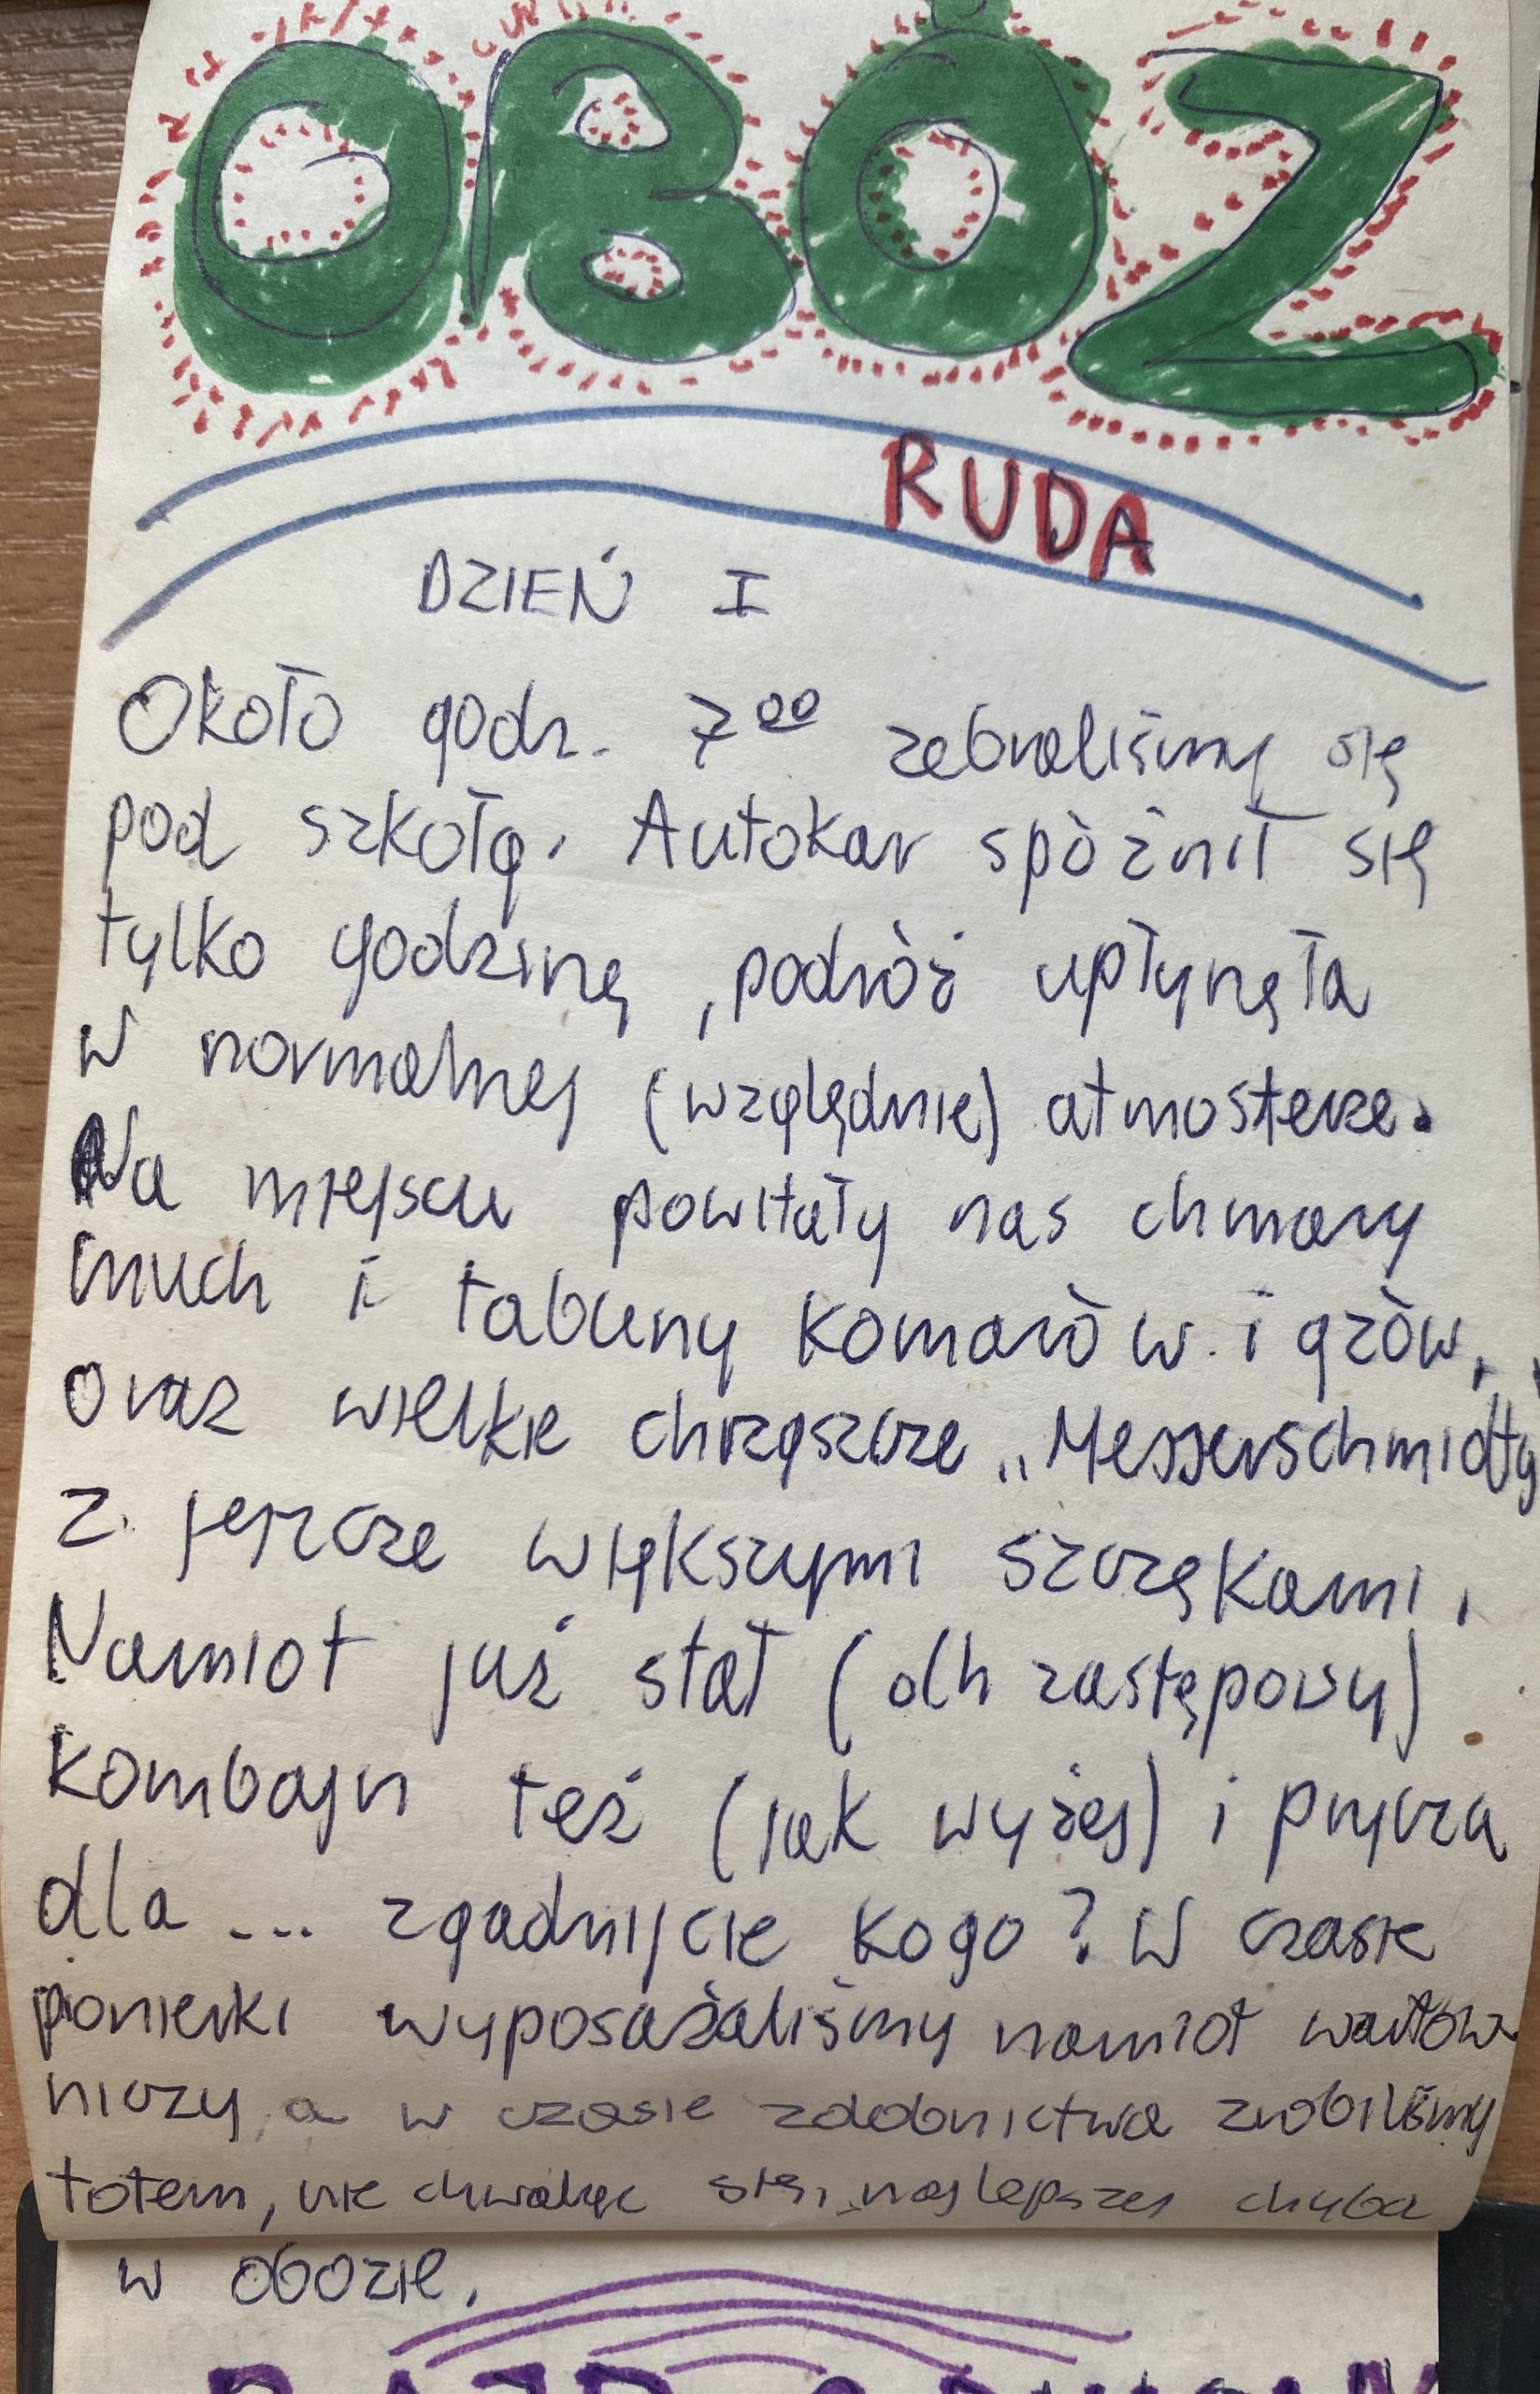 OBÓZ
RUDA
DZIEŃ I
Około godz. 7⁰⁰ zebraliśmy się
pod szkołą. Autokar spóźnił się
tylko godzinę, podróż upłynęła
w normalnej (względnie) atmosferze.
Na miejscu powitały nas chmary
much i tabuny komarów i gzów,
oraz wielkie chrząszcze „Messerschmidty
z jeszcze większymi szczękami.
Namiot już stał (dh zastępowy)
kombajn też (jak wyżej) i prycza
dla ... zgadnijcie kogo? W czasie
pionierki wyposażaliśmy namiot wartow-
niczy, a w czasie zdobnictwa zrobiliśmy
totem, nie chwaląc się, najlepszej chyba
w obozie.
RAJD